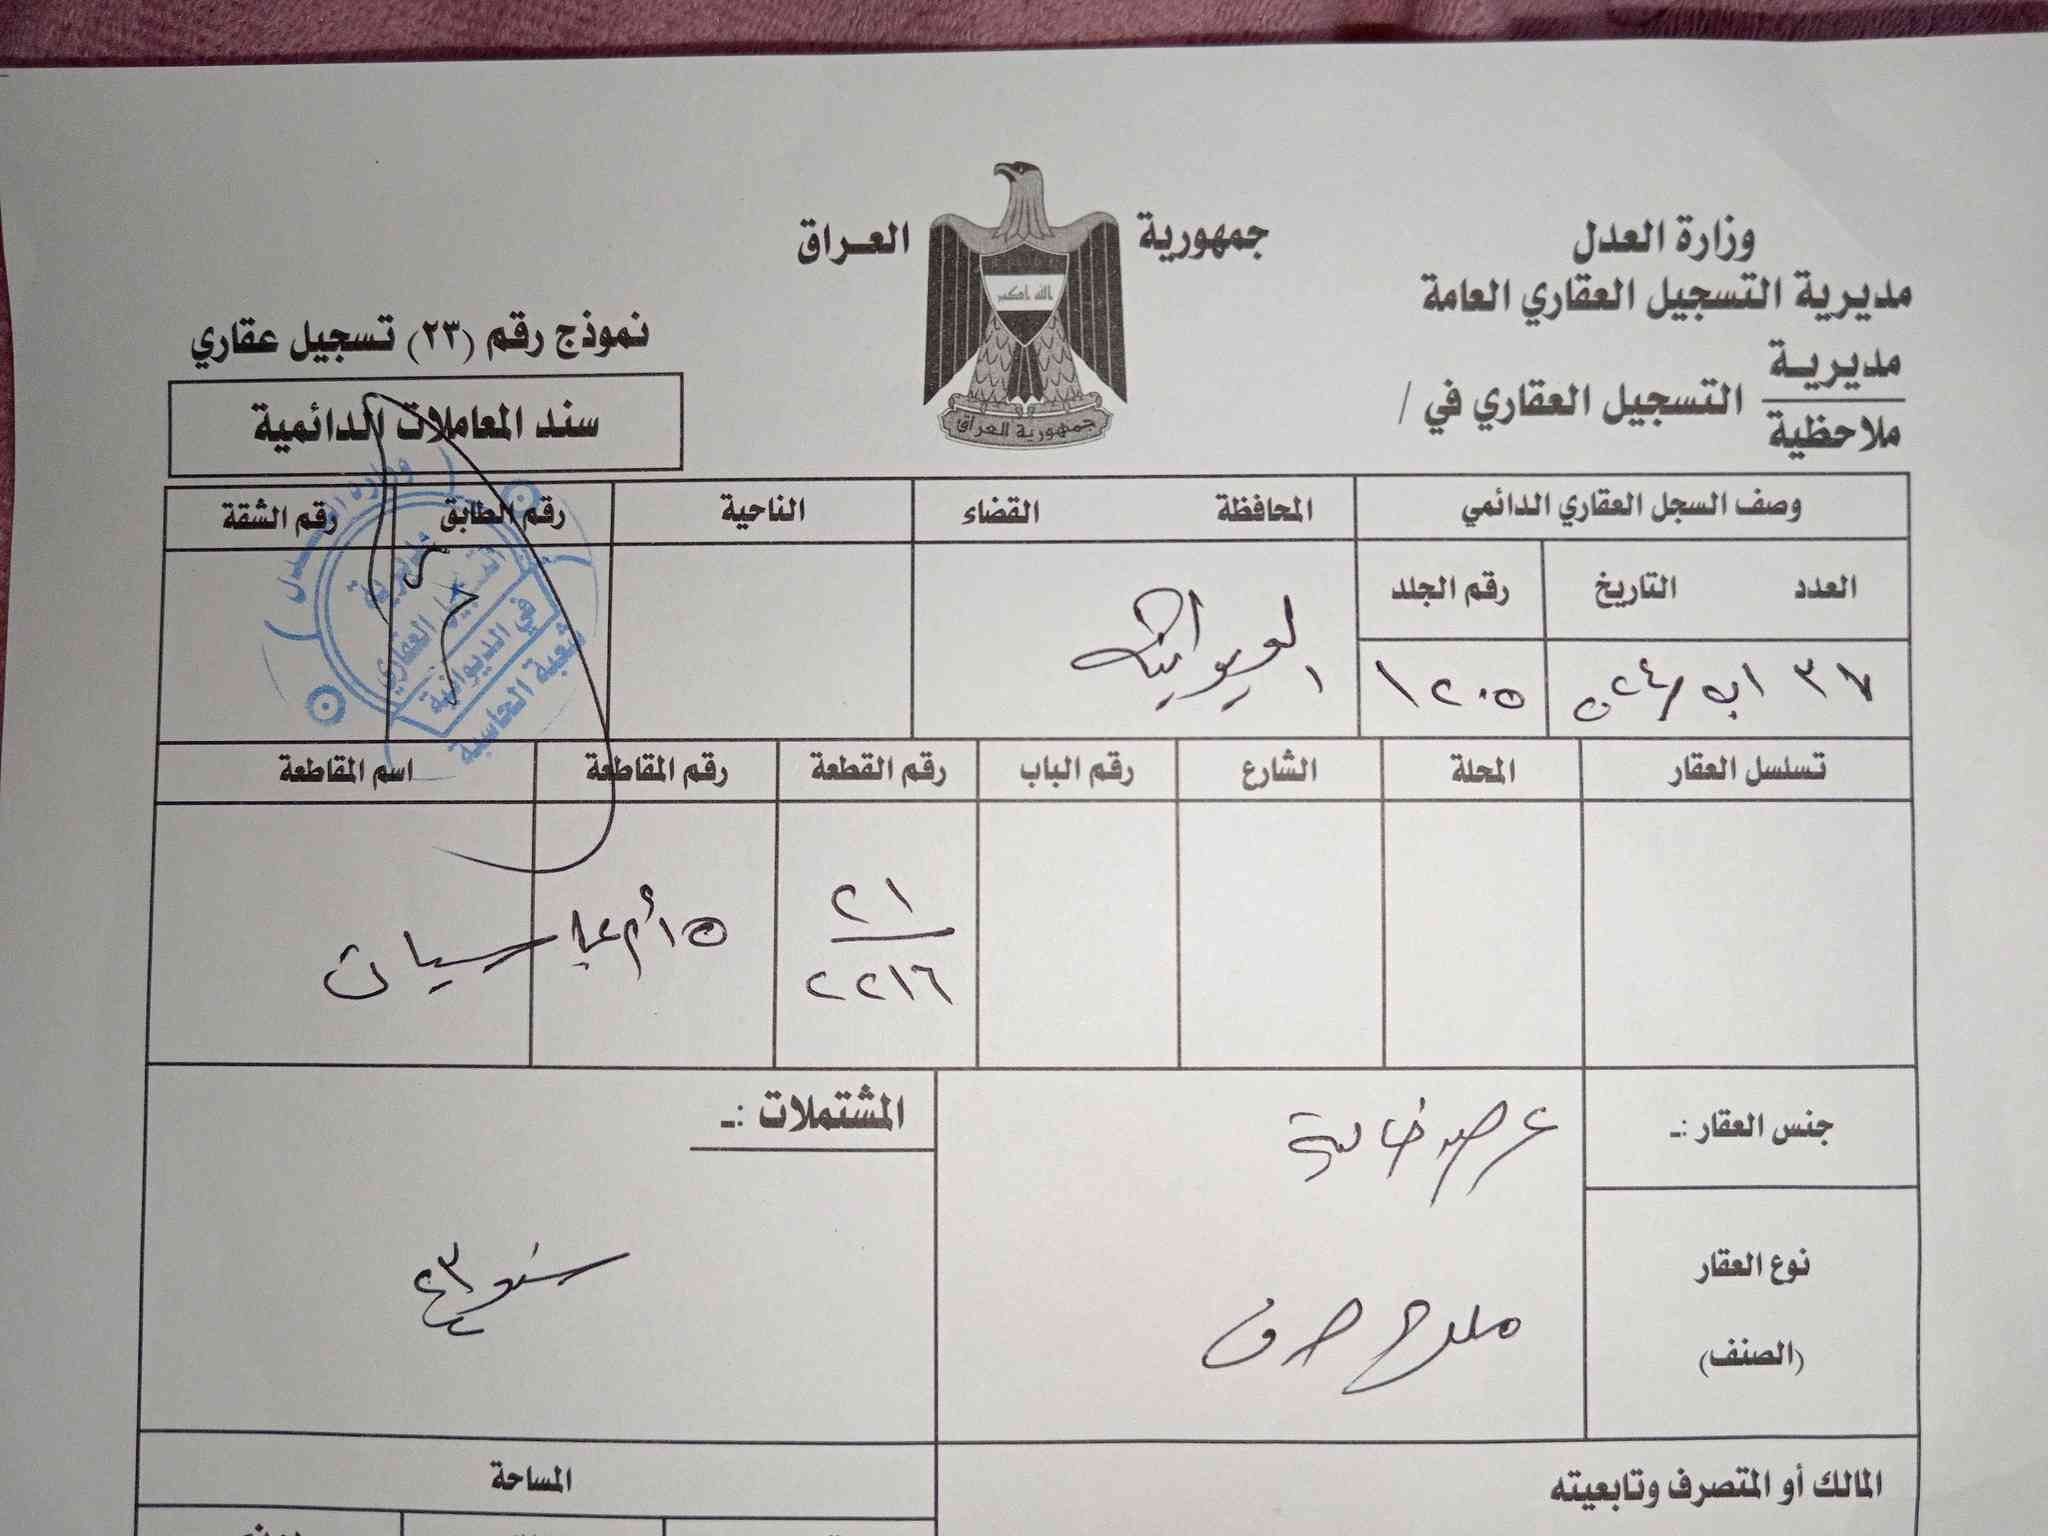 وزارة العدل
مديرية التسجيل العقاري العامة
مديرية
ملاحظية
التسجيل العقاري في /
جمهورية العراق
الله اكبر
جمهورية العراق
نموذج رقم (٢٣) تسجيل عقاري
سند المعاملات الدائمية
وصف السجل العقاري الدائمي
المحافظة القضاء
الناحية
رقم الطابق
رقم الشقة
العدد التاريخ
رقم الجلد
٣٧ اب
١٢٠٥
الديوانية
وزارة العدل
مديرية
التسجيل العقاري
في الديوانية
شعبة المحاسبة
تسلسل العقار
المحلة
الشارع
رقم الباب
رقم القطعة
رقم المقاطعة
اسم المقاطعة
٢١
٢٢١٦
١٥
جنس العقار :ـ
عرصه خالية
المشتملات :ـ
نوع العقار
(الصنف)
ملك صرف
المالك أو المتصرف وتابعيته
المساحة